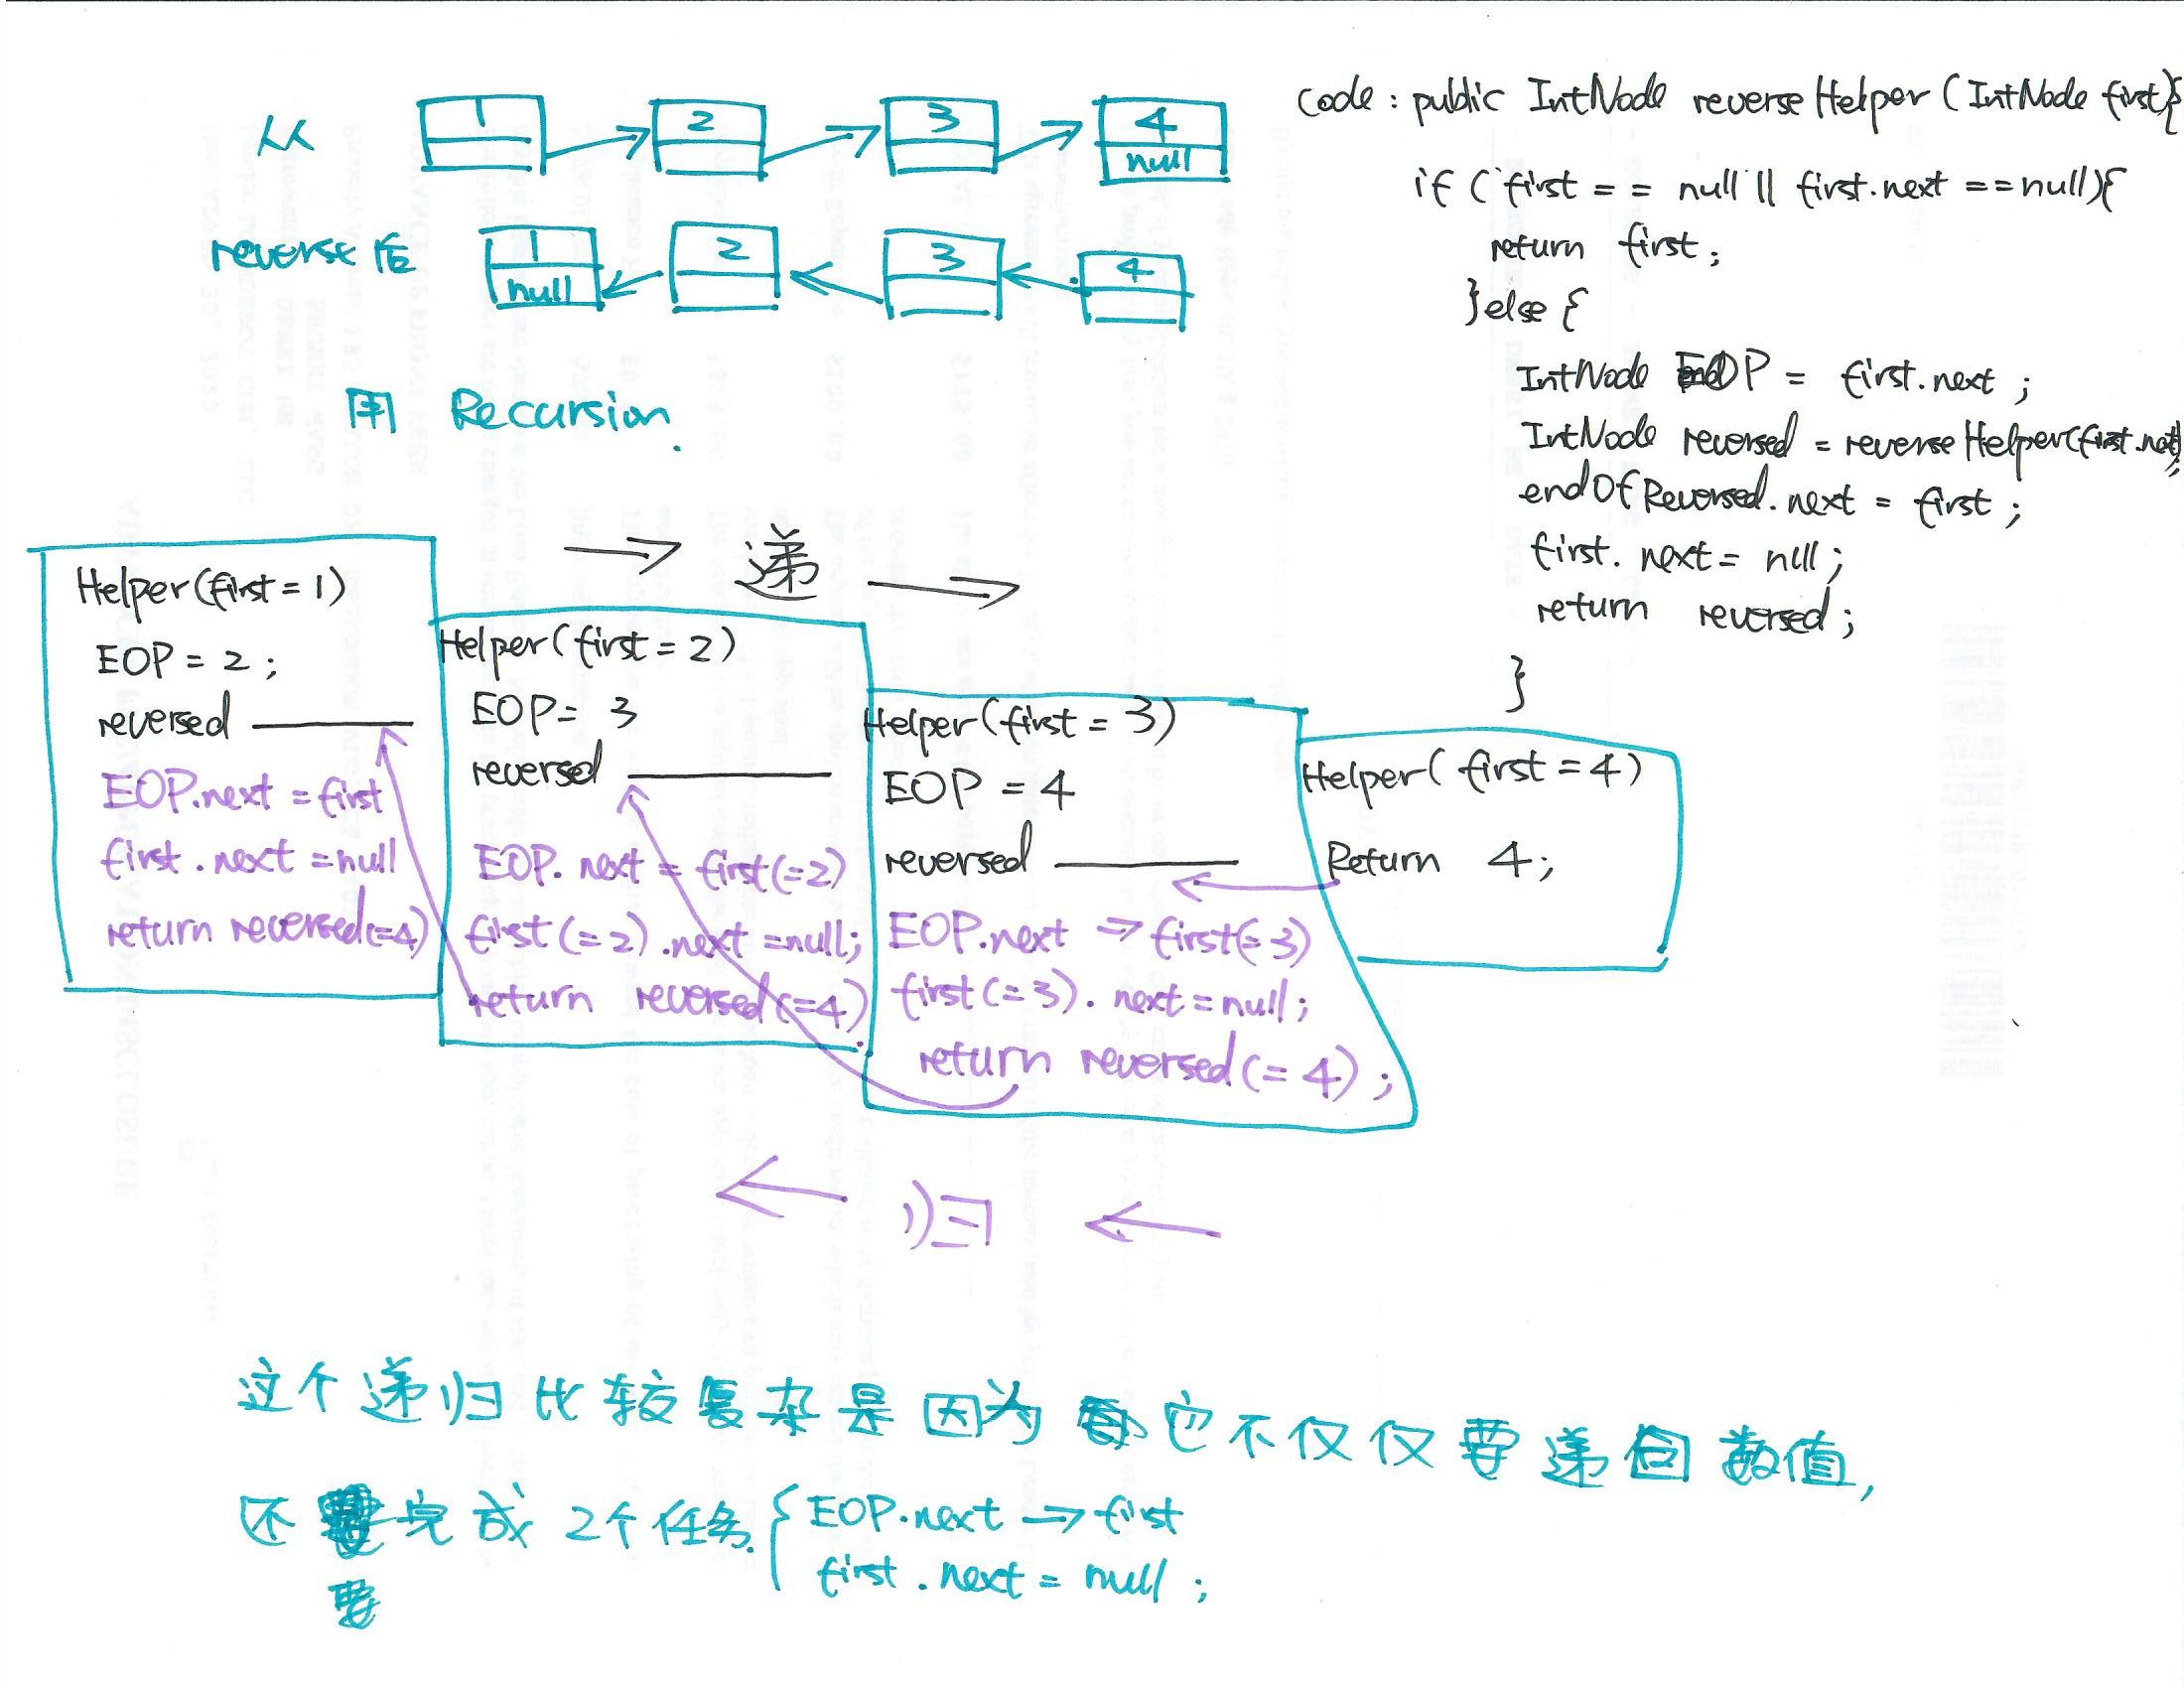 LL
1 2 3 4
null
reverse 后
1 2 3 4
null
用 Recursion.
code : public IntNode reverseHelper (IntNode first){
if ( first == null || first.next ==null){
return first;
}else {
IntNode EOP = first.next ;
IntNode reversed = reverseHelper(first.next);
endOfReversed.next = first ;
first. next = null ;
return reversed ;
}
→ 递 →
Helper(first = 1)
EOP = 2 ;
reversed
EOP.next = first
first.next = null
return reversed(=4)
Helper(first = 2)
EOP = 3
reversed
EOP. next = first(=2)
first(=2) .next =null;
return reversed(=4)
Helper(first = 3)
EOP = 4
reversed
EOP.next => first(=3)
first(=3). next = null;
return reversed(= 4) ;
Helper( first = 4)
Return 4;
← 归 ←
这个递归比较复杂是因为它不仅仅要递回数值,
还要完成 2个任务. { EOP.next → first
first . next = null ;